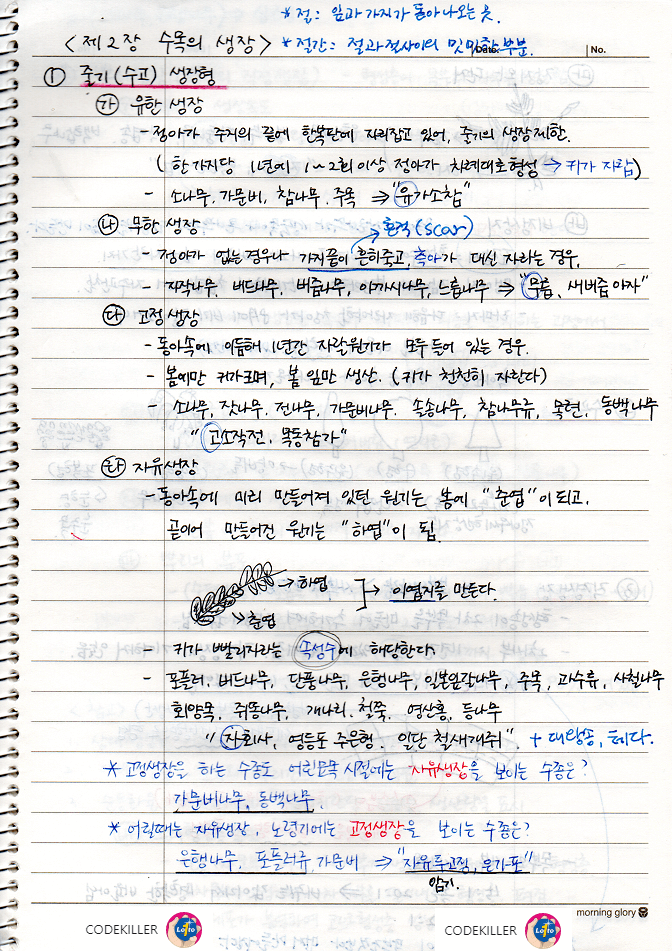 *절: 잎과 가지가 돋아나오는 곳.
<제2장 수목의 생장> *절간: 절과 절사이의 밋밋한 부분.
Date. No.
① 줄기(수고) 생장형
㉮ 유한 생장
- 정아가 주지의 끝에 한복판에 자리잡고 있어, 줄기의 생장제한.
(한가지당 1년에 1~2회 이상 정아가 차례대로 형성 → 키가 자람)
- 소나무, 가문비, 참나무, 주목 ⇒ "유가소참"
㉯ 무한 생장 → 흔적(scar)
- 정아가 없는경우나 가지끝이 흔히죽고, 측아가 대신 자라는 경우.
- 자작나무, 버드나무, 버즘나무, 아까시나무, 느릅나무 ⇒ "무릅, 새버즘아자"
㉰ 고정생장
- 동아속에 이듬해 1년간 자랄원기가 모두 들어 있는 경우.
- 봄에만 키가크며, 봄 잎만 생산. (키가 천천히 자란다)
- 소나무, 잣나무, 전나무, 가문비나무, 솔송나무, 참나무류, 목련, 동백나무
"고소작전, 목동참가"
㉱ 자유생장
- 동아속에 미리 만들어져 있던 원기는 봄에 "춘엽"이 되고,
곧이어 만들어진 원기는 "하엽"이 됨.
→ 하엽
→ 춘엽
→ 이엽지를 만든다.
- 키가 빨리자라는 속성수에 해당한다.
- 포플러, 버드나무, 단풍나무, 은행나무, 일본잎갈나무, 주목, 과수류, 사철나무
회양목, 쥐똥나무, 개나리, 철쭉, 영산홍, 등나무
"자회사, 영등포 주은행, 일단 철새개쥐". + 대왕송, 테다.
* 고정생장을 하는 수종도 어린묘목 시절에는 자유생장을 보이는 수종은?
가문비나무, 동백나무
* 어릴때는 자유생장, 노령기에는 고정생장을 보이는 수종은?
은행나무, 포플러류, 가문비 ⇒ "자유투고정, 은가포"
암기.
morning glory
CODEKILLER Lotto CODEKILLER Lotto